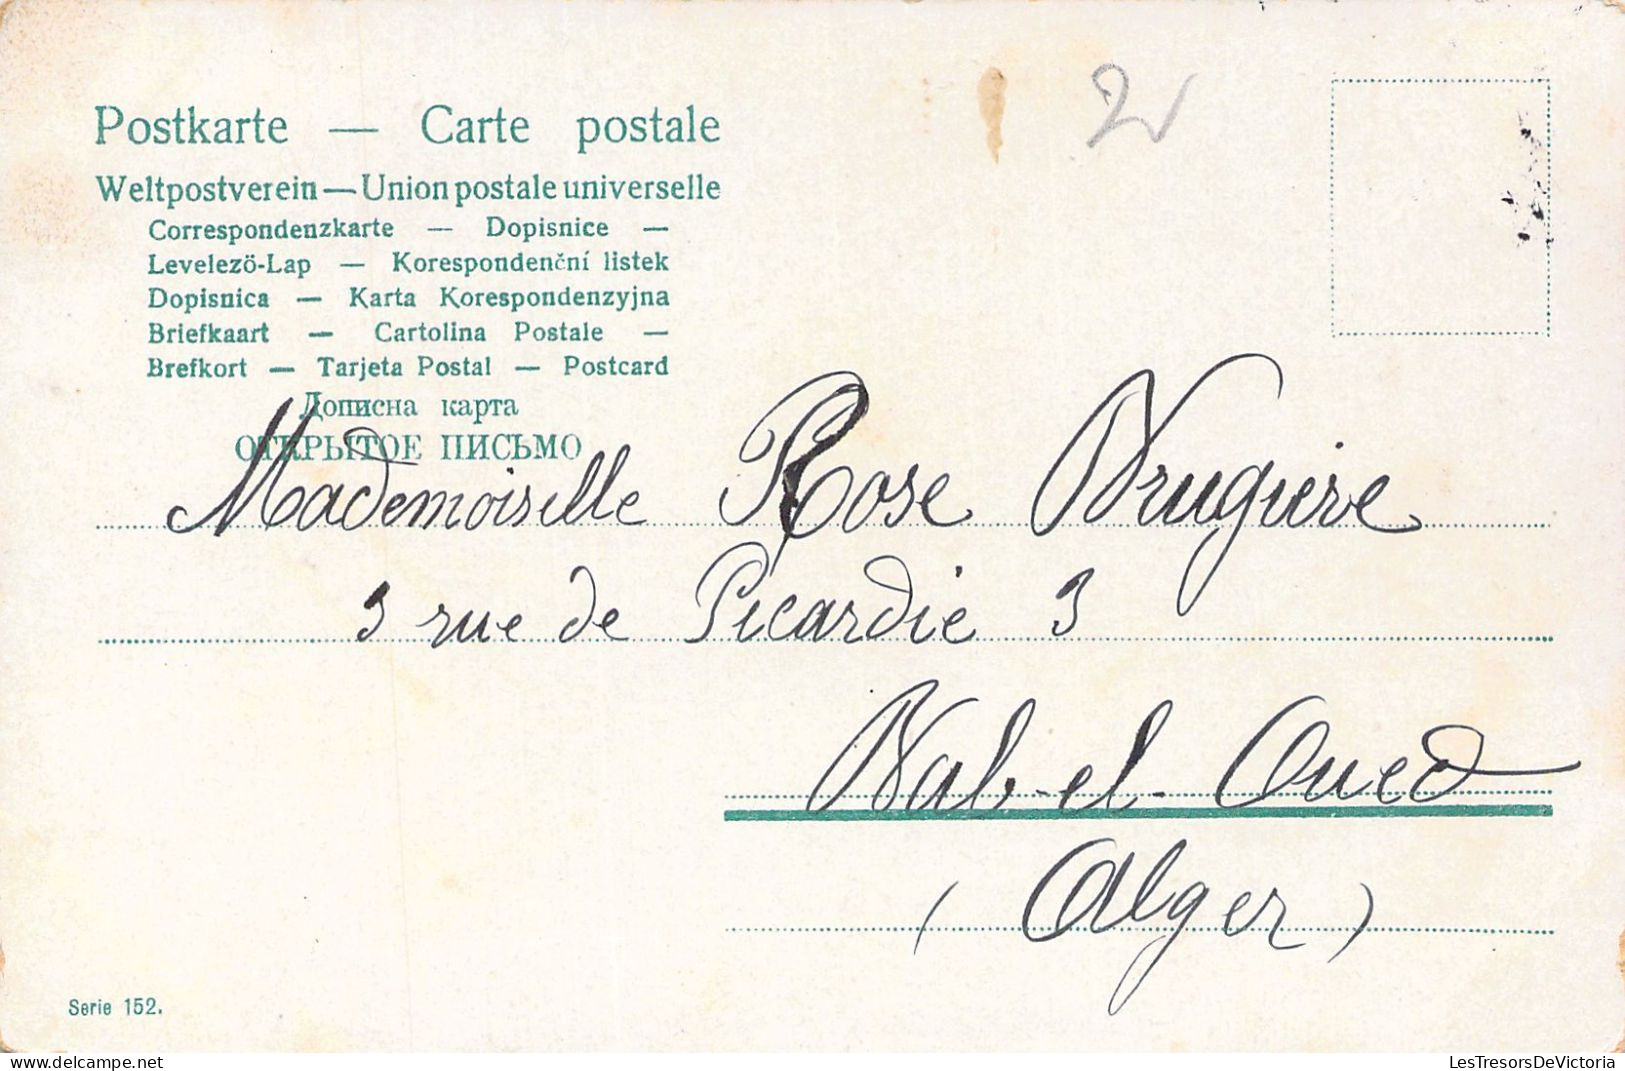 2
Postkarte — Carte postale
Weltpostverein — Union postale universelle
Correspondenzkarte — Dopisnice —
Levelezö-Lap — Korespondenční listek
Dopisnica — Karta Korespondenzyjna
Briefkaart — Cartolina Postale —
Brefkort — Tarjeta Postal — Postcard
Дописна карта
ОТКРЫТОЕ ПИСЬМО
Mademoiselle Rose Brugiere
3 rue de Picardie 3
Bab-el-Oued
(Alger)
Serie 152.
LesTresorsDeVictoria